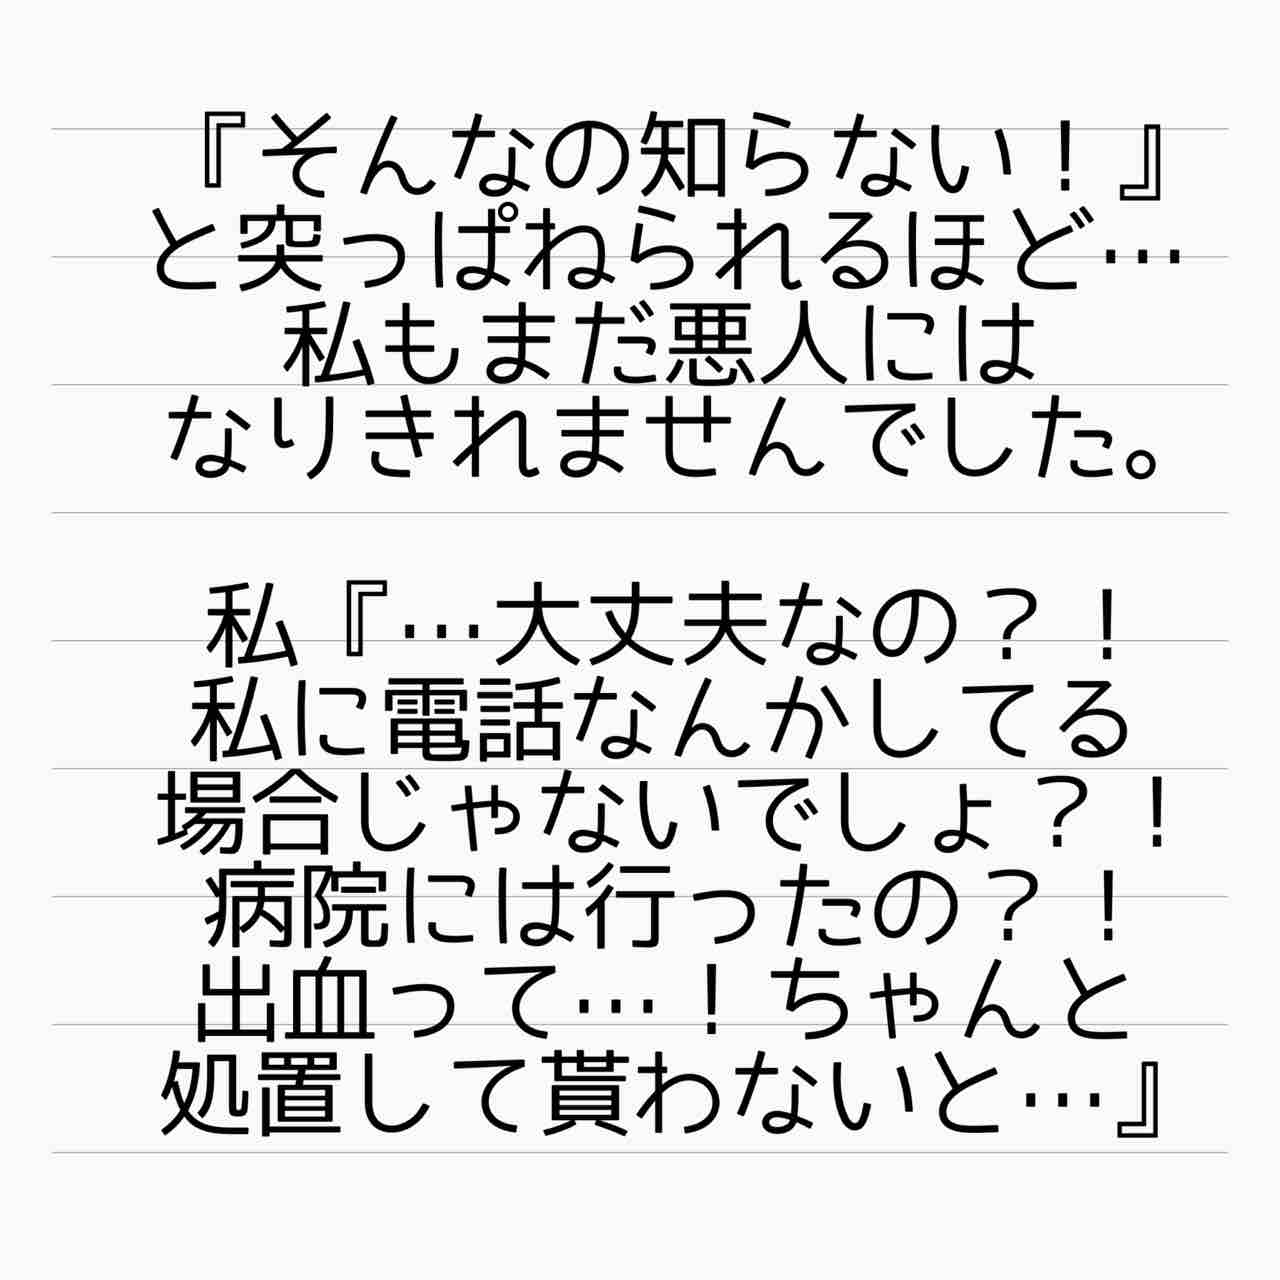 『そんなの知らない！』
と突っぱねられるほど…
私もまだ悪人には
なりきれませんでした。
私『…大丈夫なの？！
私に電話なんかしてる
場合じゃないでしょ？！
病院には行ったの？！
出血って…！ちゃんと
処置して貰わないと…』